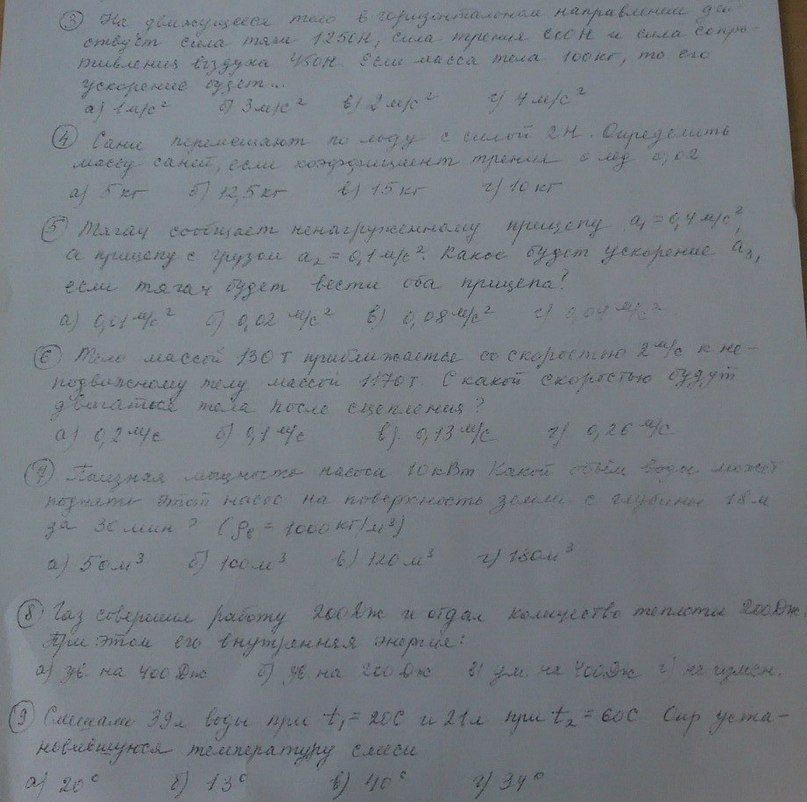 ③ На движущееся тело в горизонтальном направлении дей
ствует сила тяги 1250Н, сила трения 600Н и сила сопро-
тивления воздуха 450Н. Если масса тела 100кг, то его
ускорение будет...
а) 1м/с² б) 3м/с² в) 2м/с² г) 4м/с²
④ Сани перемещают по льду с силой 2Н. Определить
массу саней, если коэффициент трения о лёд 0,02
а) 5кг б) 12,5кг в) 15кг г) 10кг
⑤ Тягач сообщает ненагруженному прицепу a₁=0,4м/с²,
а прицепу с грузом a₂=0,1м/с². Какое будет ускорение a₃,
если тягач будет вести оба прицепа?
а) 0,01м/с² б) 0,02м/с² в) 0,08м/с² г) 0,09м/с²
⑥ Тело массой 130т приближается со скоростью 2м/с к не-
подвижному телу массой 1170т. С какой скоростью будут
двигаться тела после сцепления?
а) 0,2м/с б) 0,1м/с в) 0,13м/с г) 0,26м/с
⑦ Полезная мощность насоса 10кВт Какой объём воды может
поднять этот насос на поверхность земли с глубины 18м
за 30мин? (ρв=1000кг/м³)
а) 50м³ б) 100м³ в) 120м³ г) 180м³
⑧ Газ совершил работу 200Дж и отдал количество теплоты 200Дж.
При этом его внутренняя энергия:
а) ув на 400Дж б) ув на 200Дж в) ум. на 400Дж г) не измен.
⑨ Смешали 39л воды при t₁=20С и 21л при t₂=60С Опр уста-
новившуюся температуру смеси
а) 20° б) 13° в) 40° г) 34°